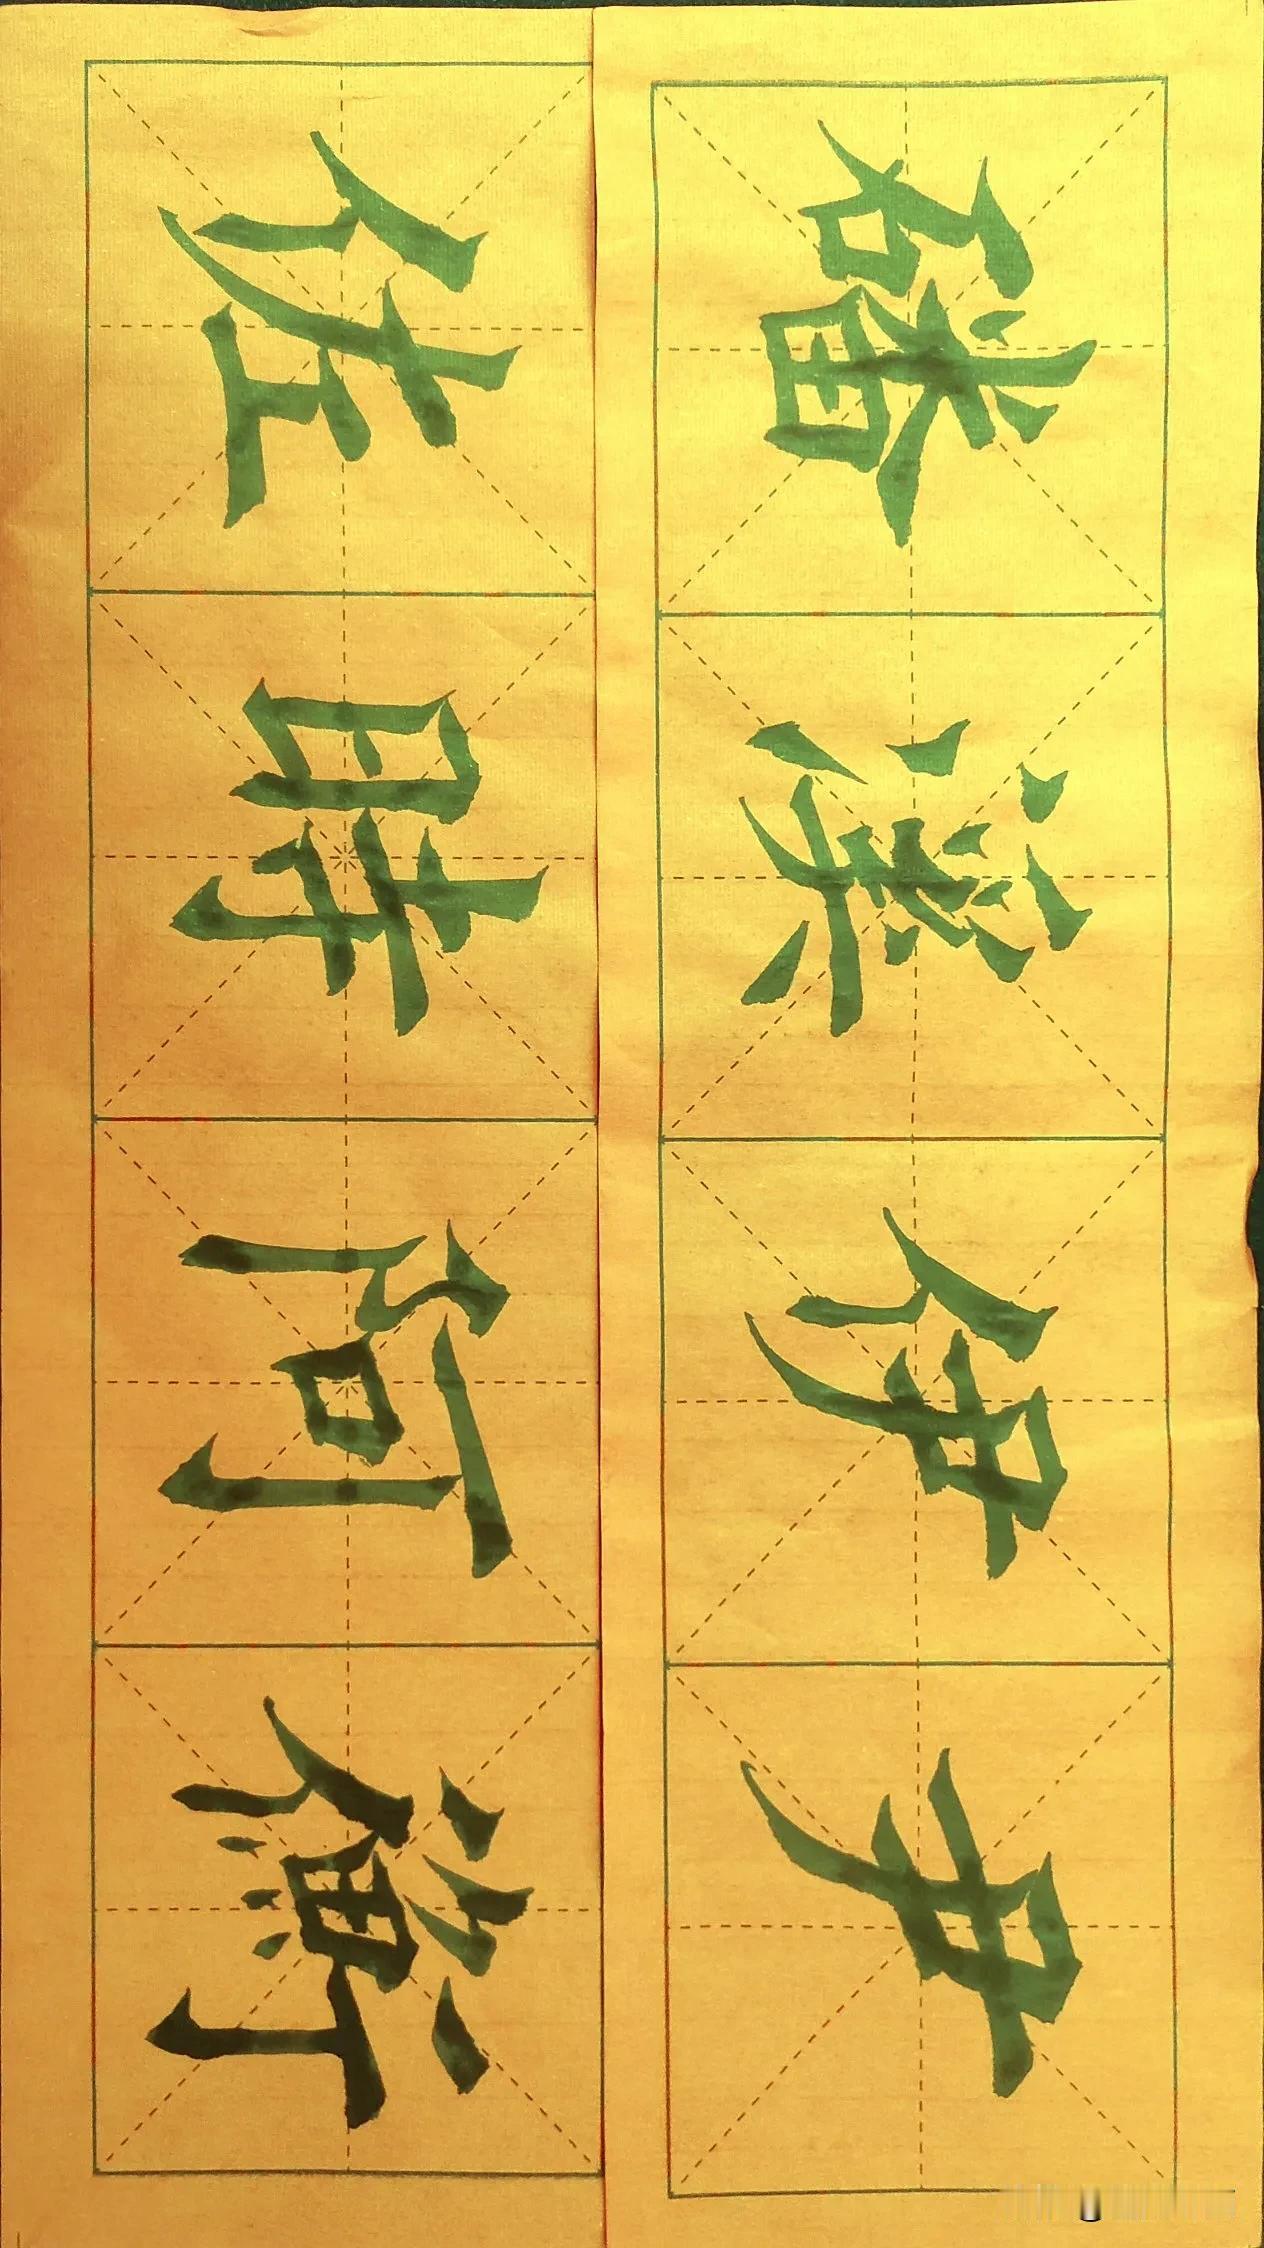 磻溪伊尹
佐時阿衡